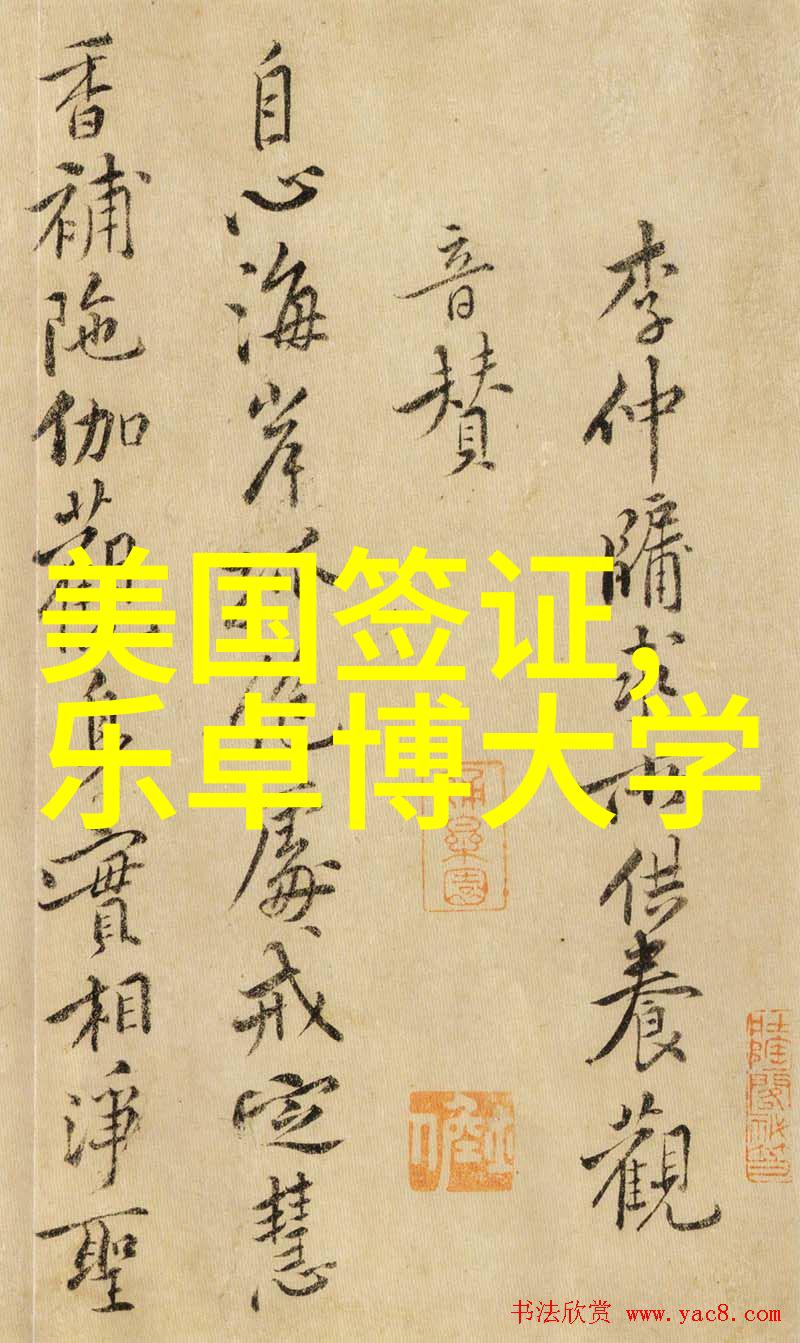 李仲牖求所供養觀
音賛
自心海岸處戒定慧
香補陁伽身實相淨聖
美国签证,
乐卓博大学
书法欣赏 www.yac8.com